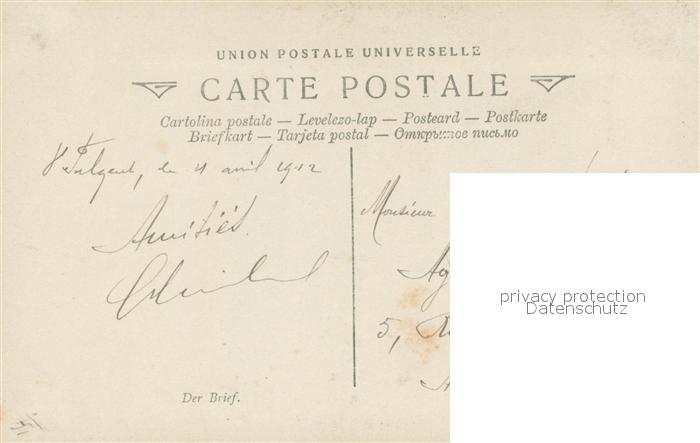 UNION POSTALE UNIVERSELLE
CARTE POSTALE
Cartolina postale — Levelezo-lap — Postcard — Postkarte
Briefkart — Tarjeta postal — Открытое письмо
St Fulgent, le 11 avril 1912
Amitiés.
Monsieur
Ag
5, R
Der Brief.
privacy protection
Datenschutz